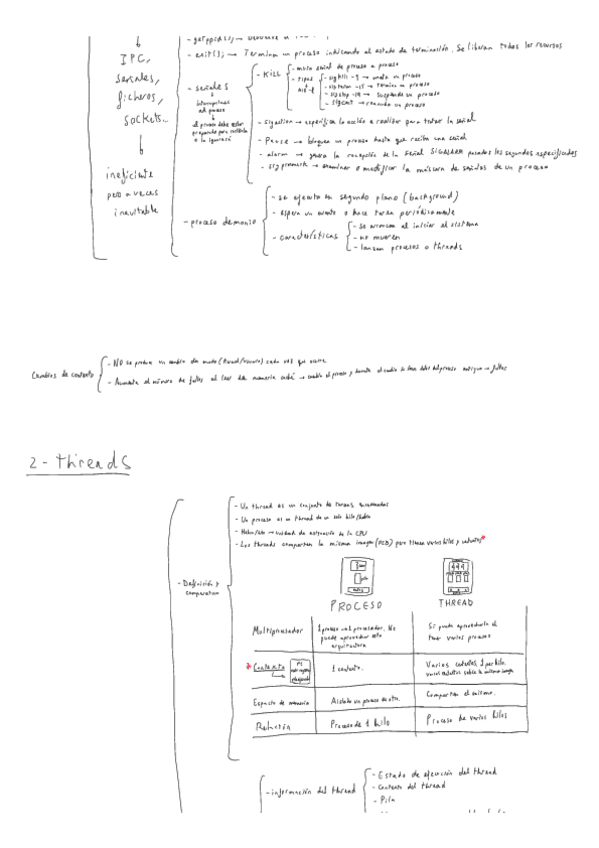 - exit(); → Termina un proceso indicando el estado de terminación. Se liberan todos los recursos
IPC,
señales,
ficheros,
sockets...
ineficiente
pero a veces
inevitable
- señales
interrupciones
al proceso
el proceso debe estar
preparado para recibirla
o la ignorará
- Kill
- manda señal de proceso a proceso
- tipos
- sigkill -9 →
- sigterm -15 → termina un proceso
- sigstop -19 → suspende un proceso
- sigcont → reanuda un proceso
- sigaction → especifica la acción a realizar para tratar la señal
- Pause → bloquea un proceso hasta que reciba una señal
- alarm → genera la recepción de la señal SIGALRM pasados los segundos especificados
- sigprocmask → examinar o modificar la máscara de señales de un proceso
- proceso demonio
- se ejecuta en segundo plano (background)
- espera un evento o hace tarea periódicamente
- características
- se arrancan al iniciar el sistema
- no mueren
- lanzan procesos o threads
Cambios de contexto
- NO se produce un cambio de modo (kernel/usuario) cada vez que ocurre
- Aumenta el número de fallos al leer de memoria caché → cambia el proceso y durante el cambio se tienen datos del proceso antiguo → fallos
2 - Threads
- Definición y
comparativa
- Un thread es un conjunto de tareas
- Un proceso es un thread de un solo hilo
- unidad de asignación de la CPU
- Los threads comparten la misma imagen (PCB) pero tienen varios hilos y contextos *
PROCESO
THREAD
Multiprocesador
1 proceso → 1 procesador. No
puede aprovechar esta
arquitectura
Sí puede aprovecharla al
tener varios procesos
* Contexto
PC
1 contexto.
Varios contextos, 1 por hilo.
varios contextos sobre la misma imagen
Espacio de memoria
Aislado un proceso de otro.
Comparten el mismo.
Relación
Proceso de 1 hilo
Proceso de varios hilos
- información del thread
- Estado de ejecución del thread
- Contexto del thread
- Pila